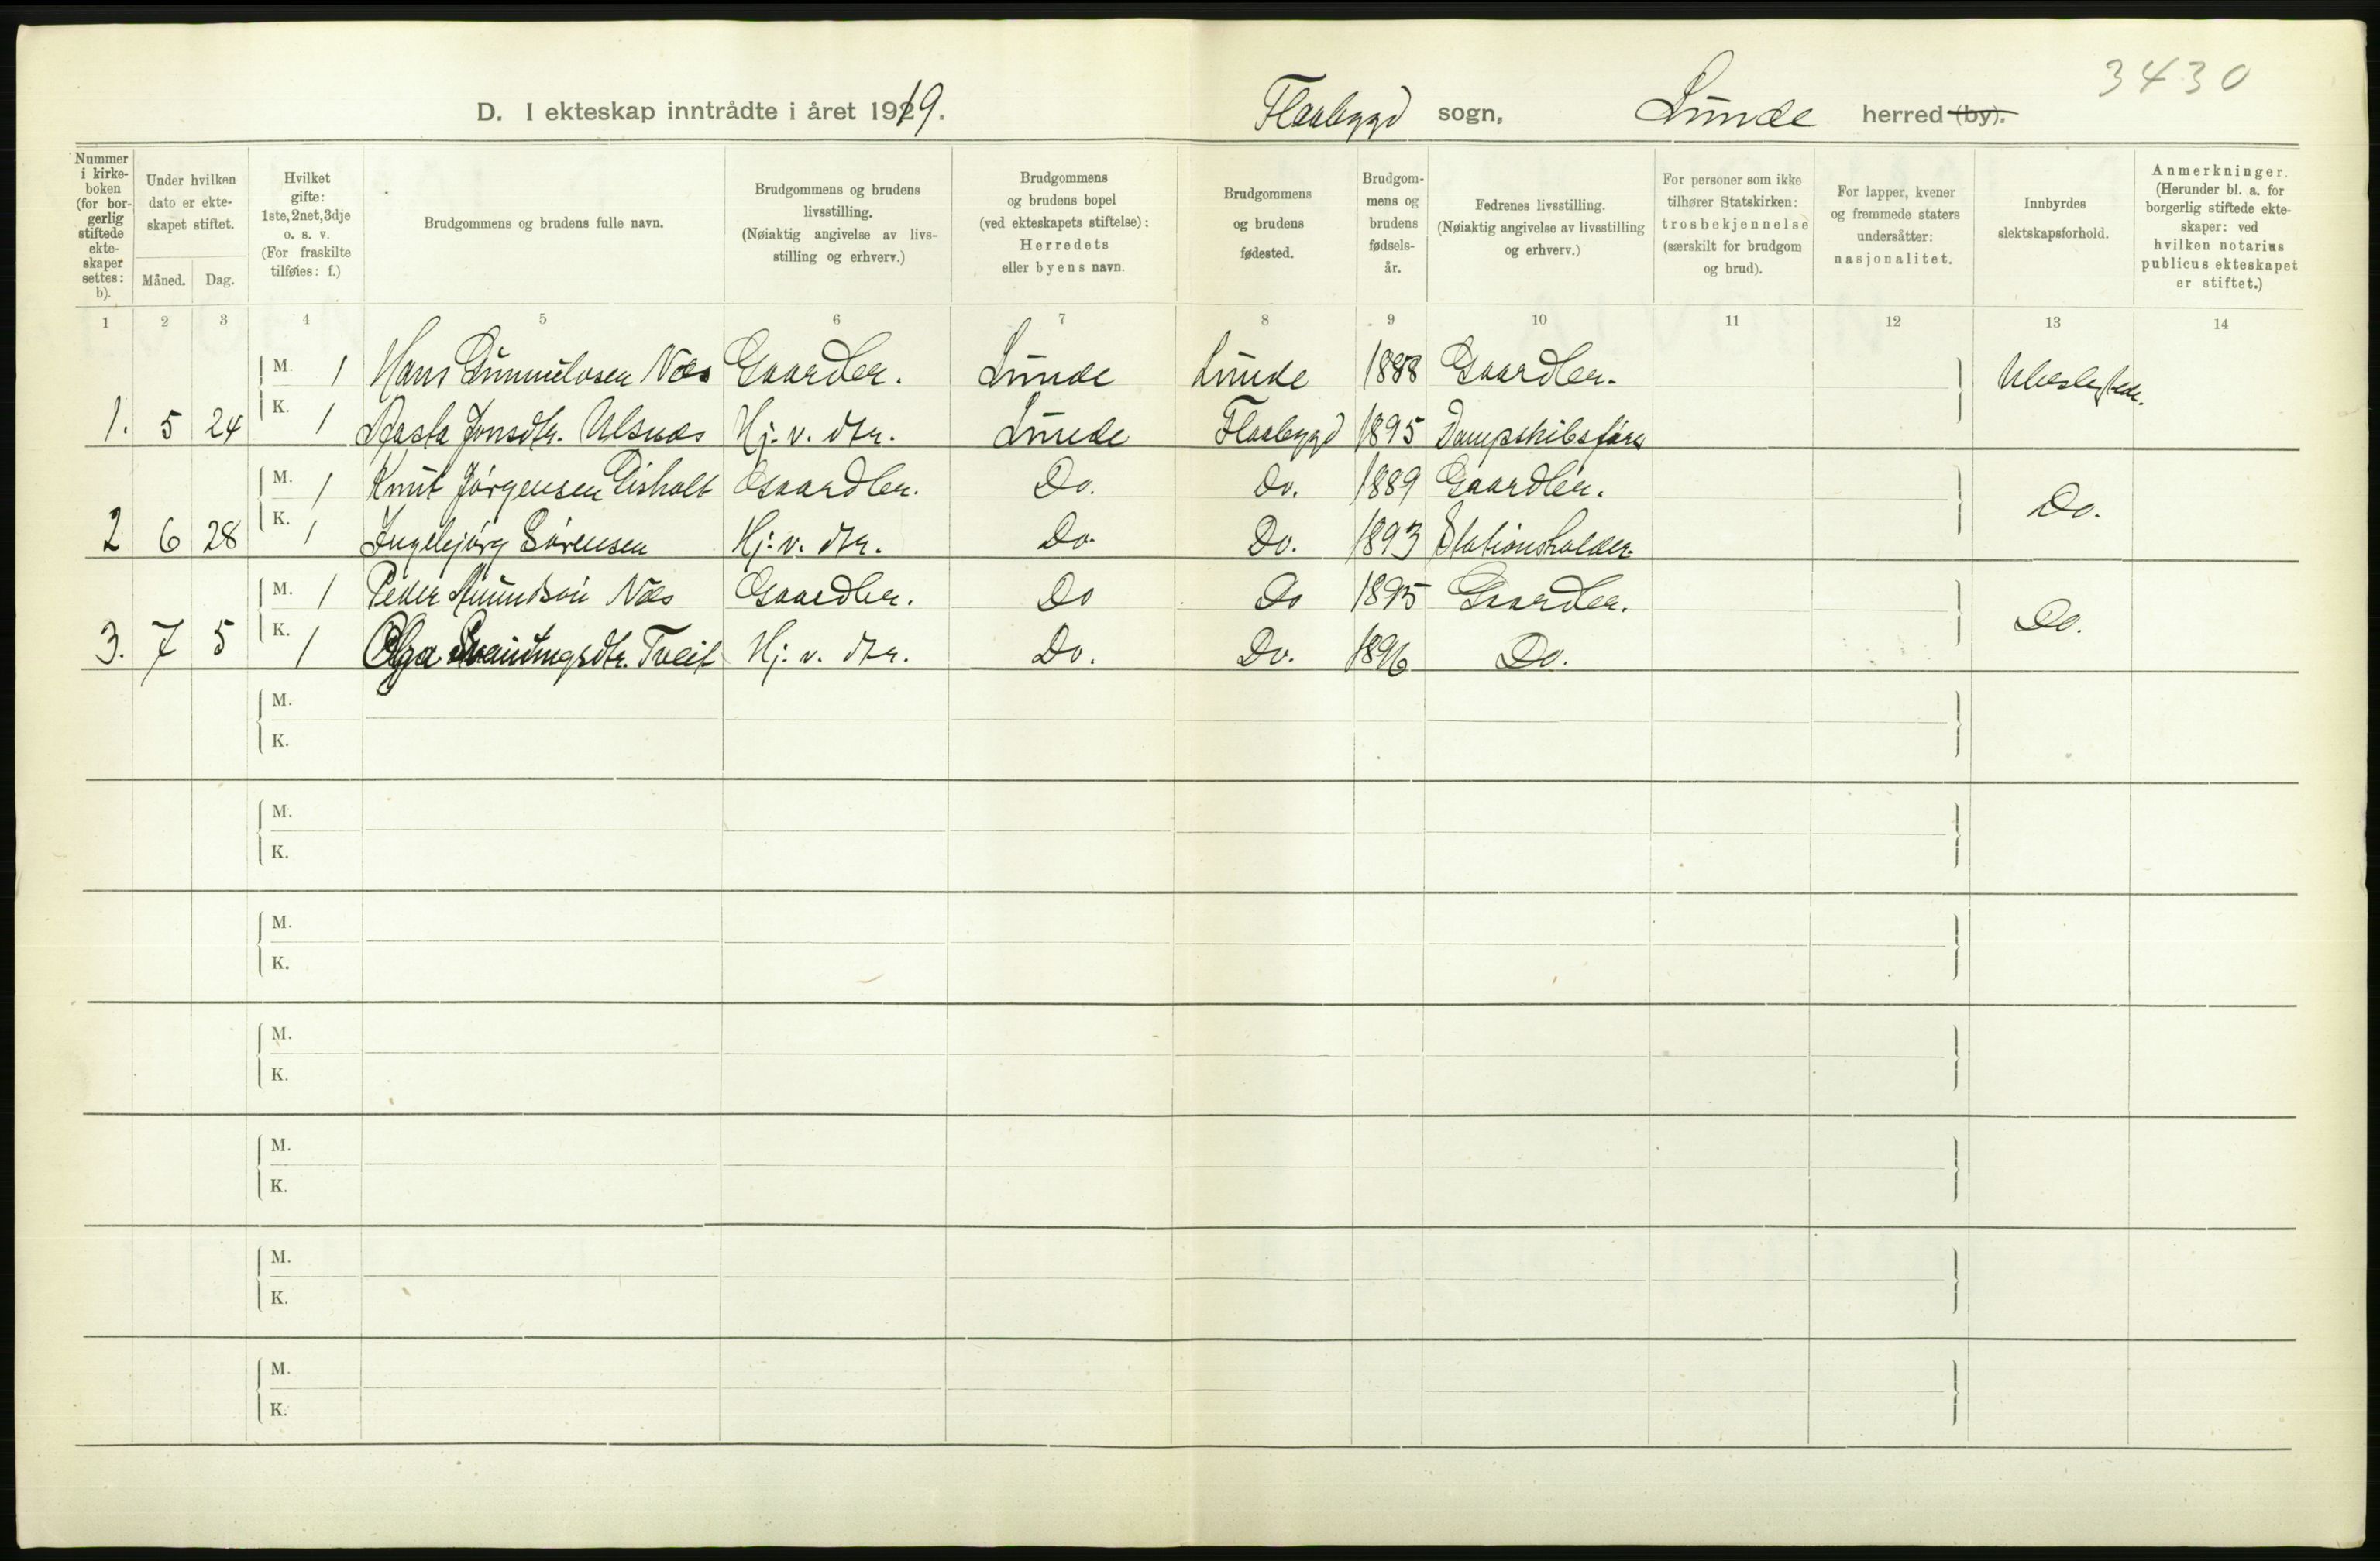 3430
D. I ekteskap inntrådte i året 1919. Flaabygd sogn, Lunde herred (by).
Nummer i kirkeboken (for borgerlig stiftede ekteskaper settes: b).
Under hvilken dato er ekteskapet stiftet.
Måned. Dag.
Hvilket gifte: 1ste, 2net, 3dje o. s. v. (For fraskilte tilføies: f.)
Brudgommens og brudens fulle navn.
Brudgommens og brudens livsstilling. (Nøiaktig angivelse av livsstilling og erhverv.)
Brudgommens og brudens bopel (ved ekteskapets stiftelse): Herredets eller byens navn.
Brudgommens og brudens fødested.
Brudgommens og brudens fødselsår.
Fedrenes livsstilling. (Nøiaktig angivelse av livsstilling og erhverv.)
For personer som ikke tilhører Statskirken: trosbekjennelse (særskilt for brudgom og brud).
For lapper, kvener og fremmede staters undersåtter: nasjonalitet.
Innbyrdes slektskapsforhold.
Anmerkninger. (Herunder bl. a. for borgerlig stiftede ekteskaper: ved hvilken notarius publicus ekteskapet er stiftet.)
1 2 3 4 5 6 7 8 9 10 11 12 13 14
M. 1 Hans Gunnulvsen Næs Gaardbr. Lunde Lunde 1888 Gaardbr. Ubeslegtede.
1. 5 24 K. 1 Aasta Jonsdtr. Ulsnæs Hj. v. dtr. Lunde Flaabygd 1895 Dampskibsfører
M. 1 Knut Jörgensen Eisholt Gaardbr. Do. Do. 1889 Gaardbr. Do.
2 6 28 K. 1 Ingebjörg Sörensen Hj. v. dtr. Do. Do. 1893 Stationsholder.
M. 1 Peder Amundsön Næs Gaardbr. Do Do 1895 Gaardbr. Do.
3. 7 5 K. 1 Olga Sveinungsdtr. Tveit Hj. v. dtr. Do. Do. 1896 Do.
M.
K.
M.
K.
M.
K.
M.
K.
M.
K.
M.
K.
M.
K.